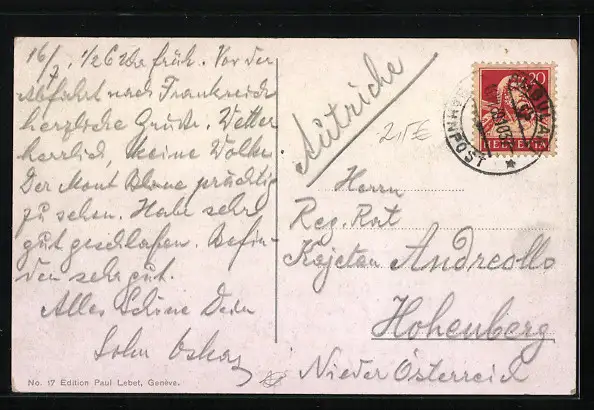 16/7. 1/2 6 Uhr früh. Vor der
Abfahrt nach Frankreich
herzliche Grüße. Wetter
herrlich, keine Wolke.
Der Mont Blanc prächtig
zu sehen. Habe sehr
gut geschlafen. Befin-
den sehr gut.
Alles Schöne Dein
Sohn Oskar
No. 17 Edition Paul Lebet, Genève.
Autriche
20
HELVETIA
POST
Herrn
Reg. Rat
Kajetan Andreollo
Hohenberg
Nieder Österreich